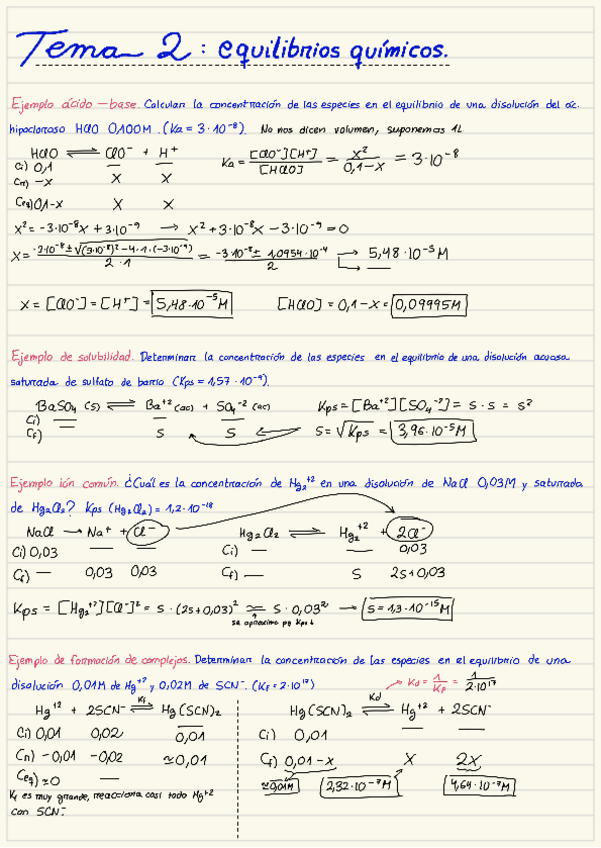 Tema 2: equilibrios químicos.
Ejemplo ácido-base. Calcular la concentración de las especies en el equilibrio de una disolución del ác.
hipocloroso HClO 0,100M. (Ka = 3·10⁻⁸). No nos dicen volumen, suponemos 1L
HClO ⇌ ClO⁻ + H⁺ Ka = [ClO⁻][H⁺]/[HClO] = x²/(0,1-x) = 3·10⁻⁸
Ci) 0,1 — —
Cn) -x x x
Ceq) 0,1-x x x
x² = -3·10⁻⁸x + 3·10⁻⁹ → x² + 3·10⁻⁸x - 3·10⁻⁹ = 0
x = (-3·10⁻⁸ ± √((3·10⁻⁸)² - 4·1·(-3·10⁻⁹)))/(2·1) = (-3·10⁻⁸ ± 1,0954·10⁻⁴)/2 → 5,48·10⁻⁵ M
x = [ClO⁻] = [H⁺] = 5,48·10⁻⁵ M [HClO] = 0,1-x = 0,09995M
Ejemplo de solubilidad. Determinar la concentración de las especies en el equilibrio de una disolución acuosa
saturada de sulfato de bario (Kps = 1,57·10⁻⁹).
BaSO₄ (s) ⇌ Ba⁺² (ac) + SO₄⁻² (ac) Kps = [Ba⁺²][SO₄⁻²] = s·s = s²
Ci) — — —
Cf) s s s = √Kps = 3,96·10⁻⁵ M
Ejemplo ión común. ¿Cuál es la concentración de Hg₂⁺² en una disolución de NaCl 0,03M y saturada
de Hg₂Cl₂? Kps (Hg₂Cl₂) = 1,2·10⁻¹⁸
NaCl → Na⁺ + Cl⁻ Hg₂Cl₂ ⇌ Hg₂⁺² + 2Cl⁻
Ci) 0,03 — — Ci) — — 0,03
Cf) — 0,03 0,03 Cf) — s 2s+0,03
Kps = [Hg₂⁺²][Cl⁻]² = s·(2s+0,03)² ≃ s·0,03² → s = 1,3·10⁻¹⁵ M
se aproxima pq Kps↓
Ejemplo de formación de complejos. Determinar la concentración de las especies en el equilibrio de una
disolución 0,01M de Hg⁺² y 0,02M de SCN⁻. (Kf = 2·10¹⁷) → Kd = 1/Kf = 1/2·10¹⁷
Hg⁺² + 2SCN⁻ ⇌ Kf Hg(SCN)₂ Hg(SCN)₂ ⇌ Kd Hg⁺² + 2SCN⁻
Ci) 0,01 0,02 — 0,01 Ci) 0,01 — —
Cn) -0,01 -0,02 ≃0,01 Cf) 0,01-x x 2x
Ceq) ≃0 — ≃0,01M 2,32·10⁻⁷ M 4,64·10⁻⁷ M
Kf es muy grande, reacciona casi todo Hg⁺²
con SCN⁻.